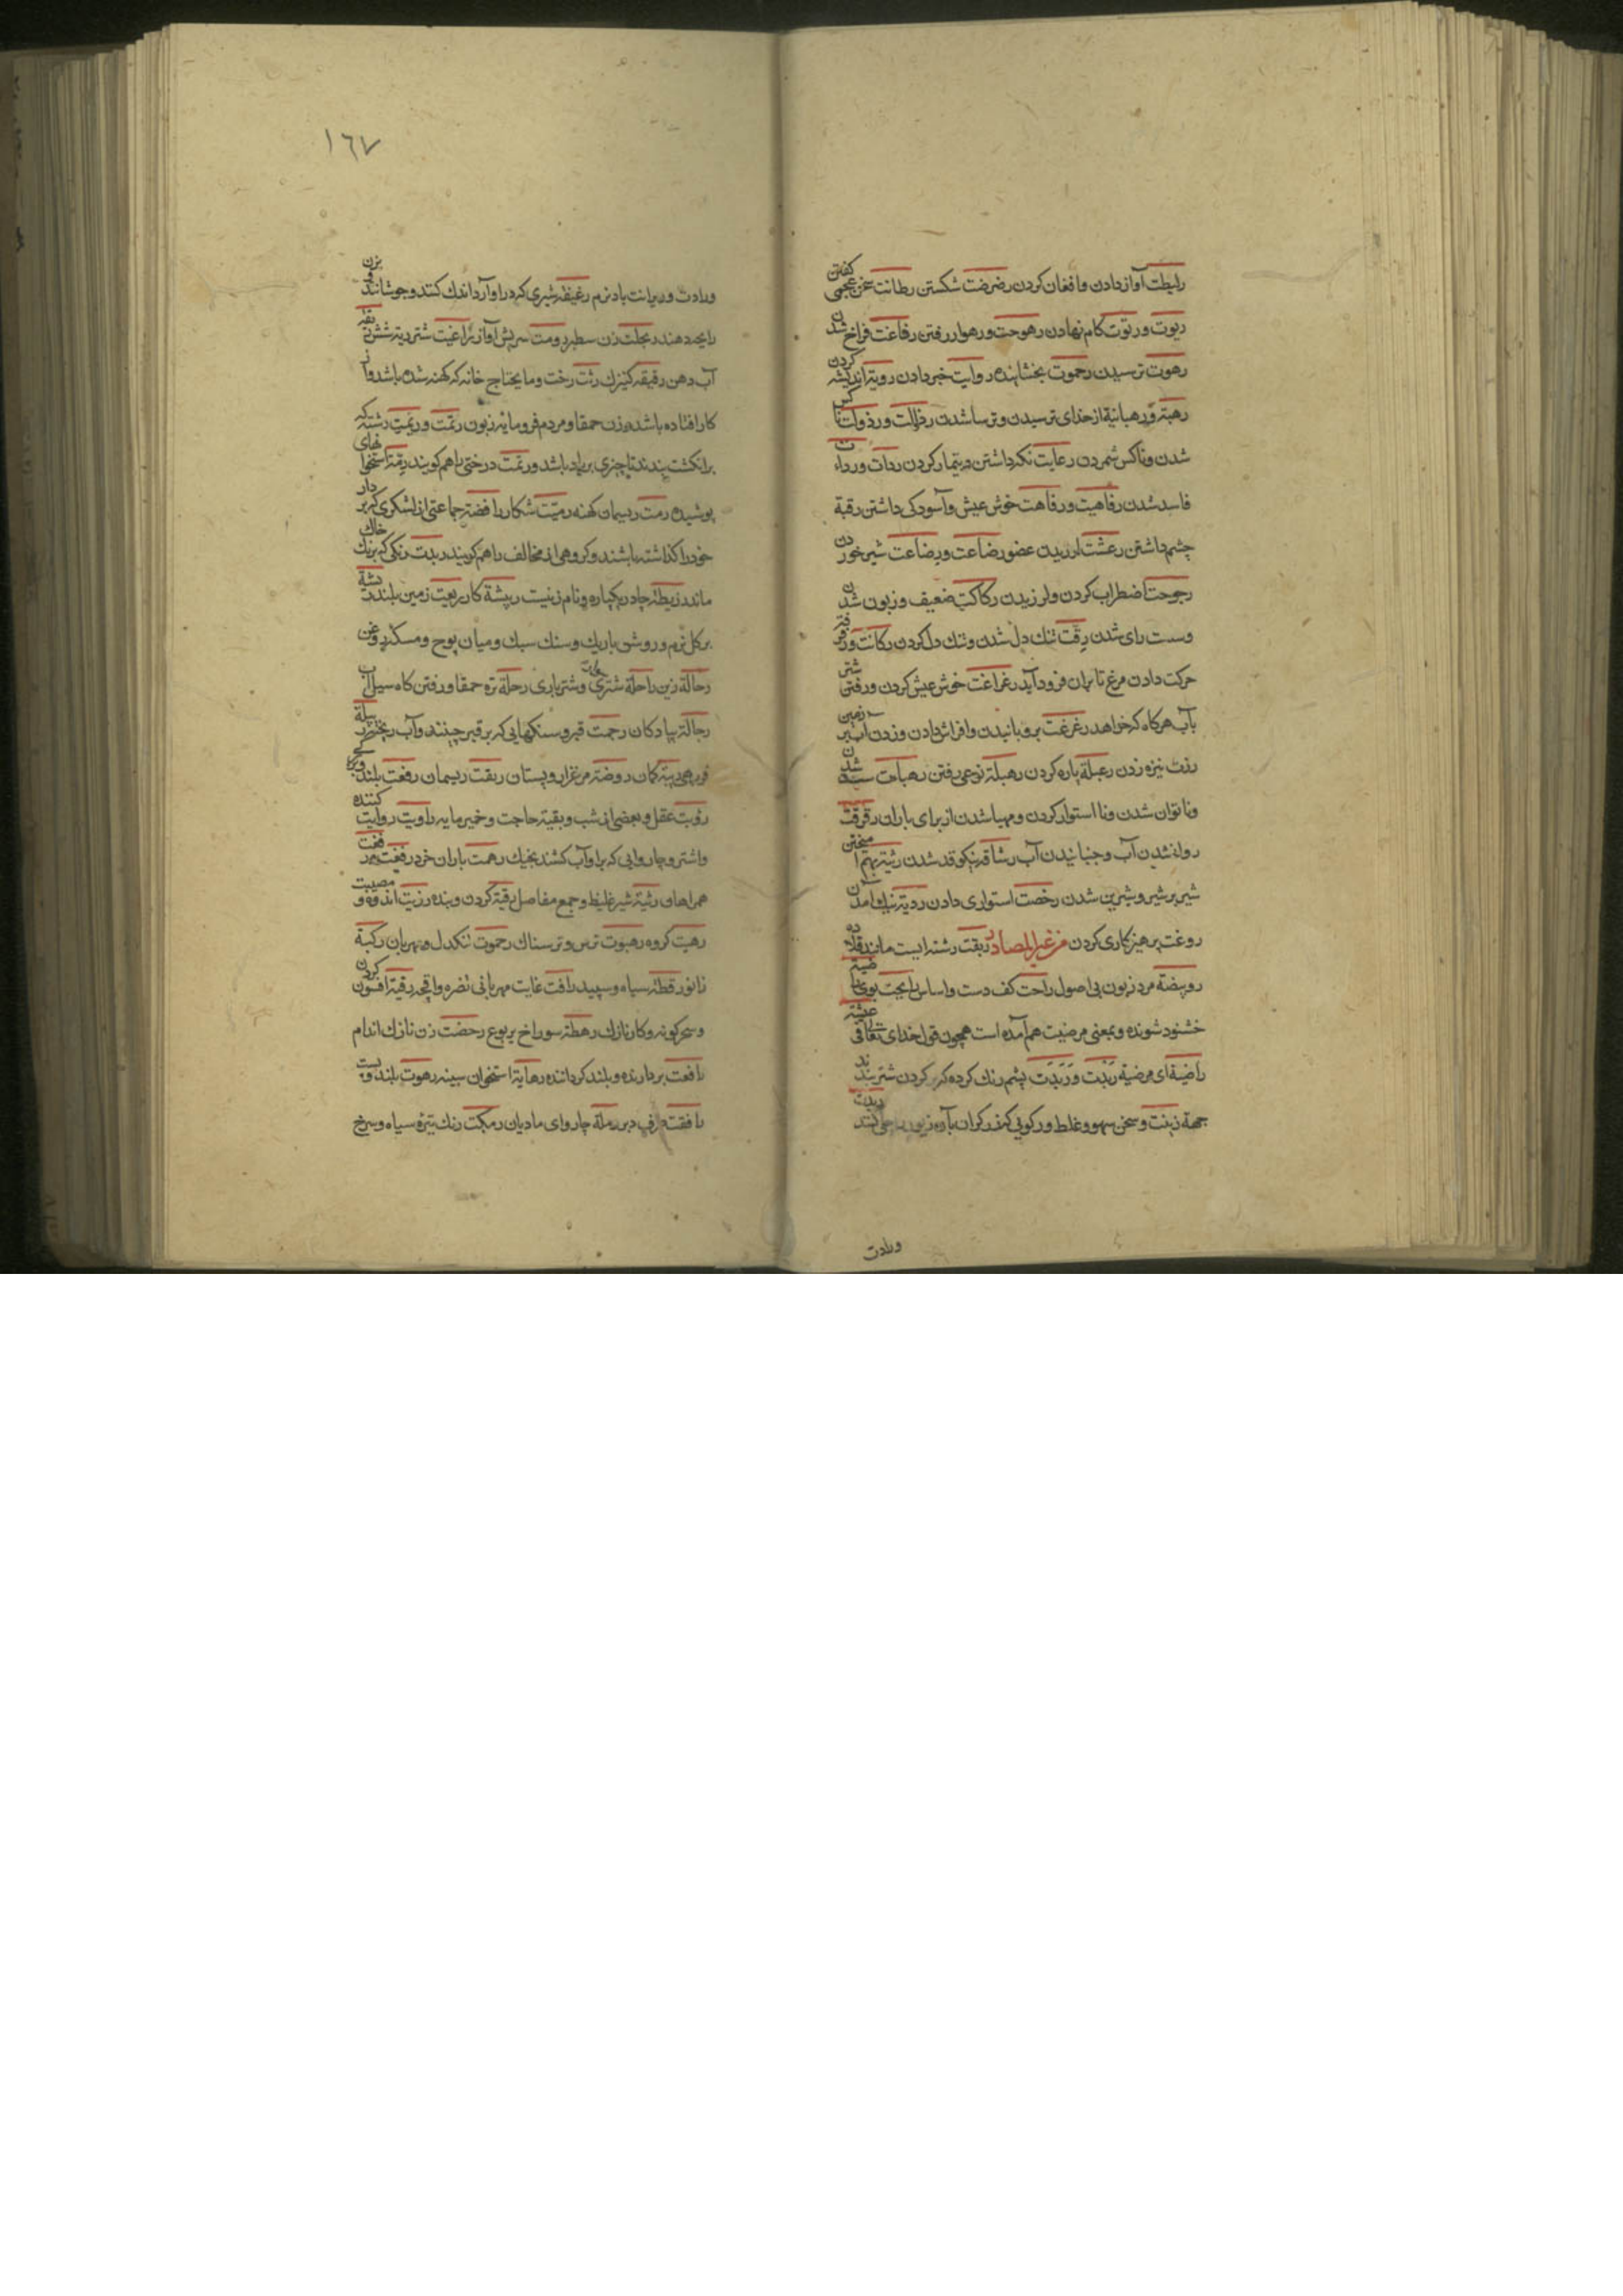 رابطت آواز دادن و افغان کردن رضرضت شکستن رطانت سخن عجمی گفتن
ربوت و رتوت کام نهادن رهوجت و رهوار رفتن رفاغت فراخ شدن
رهوت ترسیدن رحموت بخشاینده روایت خبر دادن رویة اندیشه کردن
رهبة و رهبانیة از خدای ترسیدن و ترسا شدن رذالت و رذولت ناکس
شدن و ناکس شمردن رعایت نگه داشتن و تیمار کردن ردأت و رداءت
فاسد شدن رفاهیت و رفاهت خوش عیش و آسودگی داشتن رقبة
چشم داشتن رعشت لرزیدن عضو رضاعت و رضاعت شیر خوردن
رجوحت اضطراب کردن و لرزیدن رکاکت ضعیف و زبون شدن
وسست رای شدن رقت تنک دل شدن و تنک دل کردن رکانت و رفرفة
حرکت دادن مرغ تا بران فرود آید رغراغت خوش عیش کردن و رفتن شتر
بآب هرگاه که خواهد رغرغت برویانیدن و افراش دادن و زدن آب بر زمین
رزت نیزه زدن رعبلة پاره کردن رهبلة نوعی رفتن رهبات سست شدن
وناتوان شدن ونا استوار کردن و مهیا شدن از برای باران رقرقت
روانه شدن آب و جنبانیدن آب رشاقة نیکو قد شدن رثیة بهم آمیختن
شیر بر شیر و شیرین شدن رخصت استواری دادن ردیة نیک آمدن
روغت پرهیزکاری کردن من غیر المصادر ربقت رشته ایست مانند قلاده
رویضة مرد زبون بی اصول راحت کف دست و اساس رایحت بوی راضیة
خشنود شونده و بمعنی مرضیت هم آمده است همچون قول خدای تعالی عیشة
راضیة ای مرضیة رَبَذت وَ رَبَذَت پشم رنک کرده که در گردن شتر بندند
جهة زینت و سخن سهو و غلط و رکویی که زرکران بآن زیور جلی کنند ربدت
ورادت
١٦٧
ورادت و ریرانت باد نرم رغیغة شیری که در او آرد اندک کنند و جوشانند و بزن
زایجه دهند رجلت زن سطبر رومت سریش آواز راغیت شتر ریة شش ریقة
آب دهن رقیقه کنیزک رثت رخت و مایحتاج خانه که کهنه شده باشد و از
کار افتاده باشد و زن حمقا و مردم فرومایه زبون رتمت و رتیمت رشته که
بر انکشت بندند تا چیزی بریاد باشد و رتمت درختی را هم کویند رمة استخوانهای
پوشیده رمت ریسمان کهنه رمیت شکار رافضة جماعتی از لشکری که بر دار
خود را کذاشته باشند و کروهی از مخالف را هم کویند ربدت رنکی که برنک خاک
ماند ریطة چادر یکپاره و نام زنیست ریشة کار ربعیت زمین بلند رشة
بر کل نرم و روشن باریک و سنک سبک و میان پوح و مسکه روغن
رحالة زین راحلة شتری و شتر باری رحلة تره حمقا و رفتن کاه سیل آب
رجالة پیادکان رحمت قبر و سنکهایی که بر قبر چینند و آب ریختن رسلة
فربهی رینة کمان روضة مرغزار و پستان ربقت ریسمان رفعت بلندی
رؤبت عقل و بعضی از شب و بقیة حاجت و خمیر مایه راویت روایت کننده
واشتر و چاروایی که بر او آب کشند بخیک رهمت باران خرد رفقت
همراهان رثیة شیر غلیظ و جمع مفاصل رقبة کردن و بنده رزیت اندوه و مصیبت
رهبت کروه رهبوت ترس و ترسناک رحموت تنکدل و مهربان رکبة
زانو رقطة سیاه و سپید رأفت غایت مهربانی نضره واقجه رقیة افسون کردن
و سحر کونه و کار نازک رهطة سوراخ یربوع رحضت زن نازک اندام
رافعت بردارنده و بلند کرداننده رهایة استخوان سینه رهوت بلند و پست
رافقت دبر رملة چاروای مادیان رمکت رنک تیره سیاه و سرخ